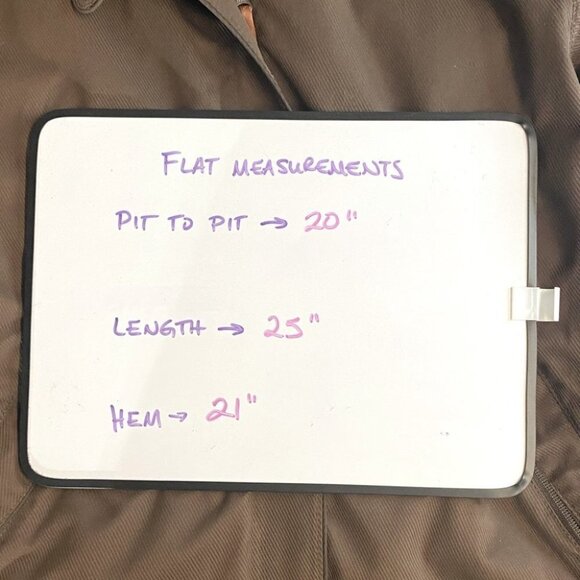 FLAT MEASUREMENTS
PIT TO PIT → 20"
LENGTH → 25"
HEM → 21"